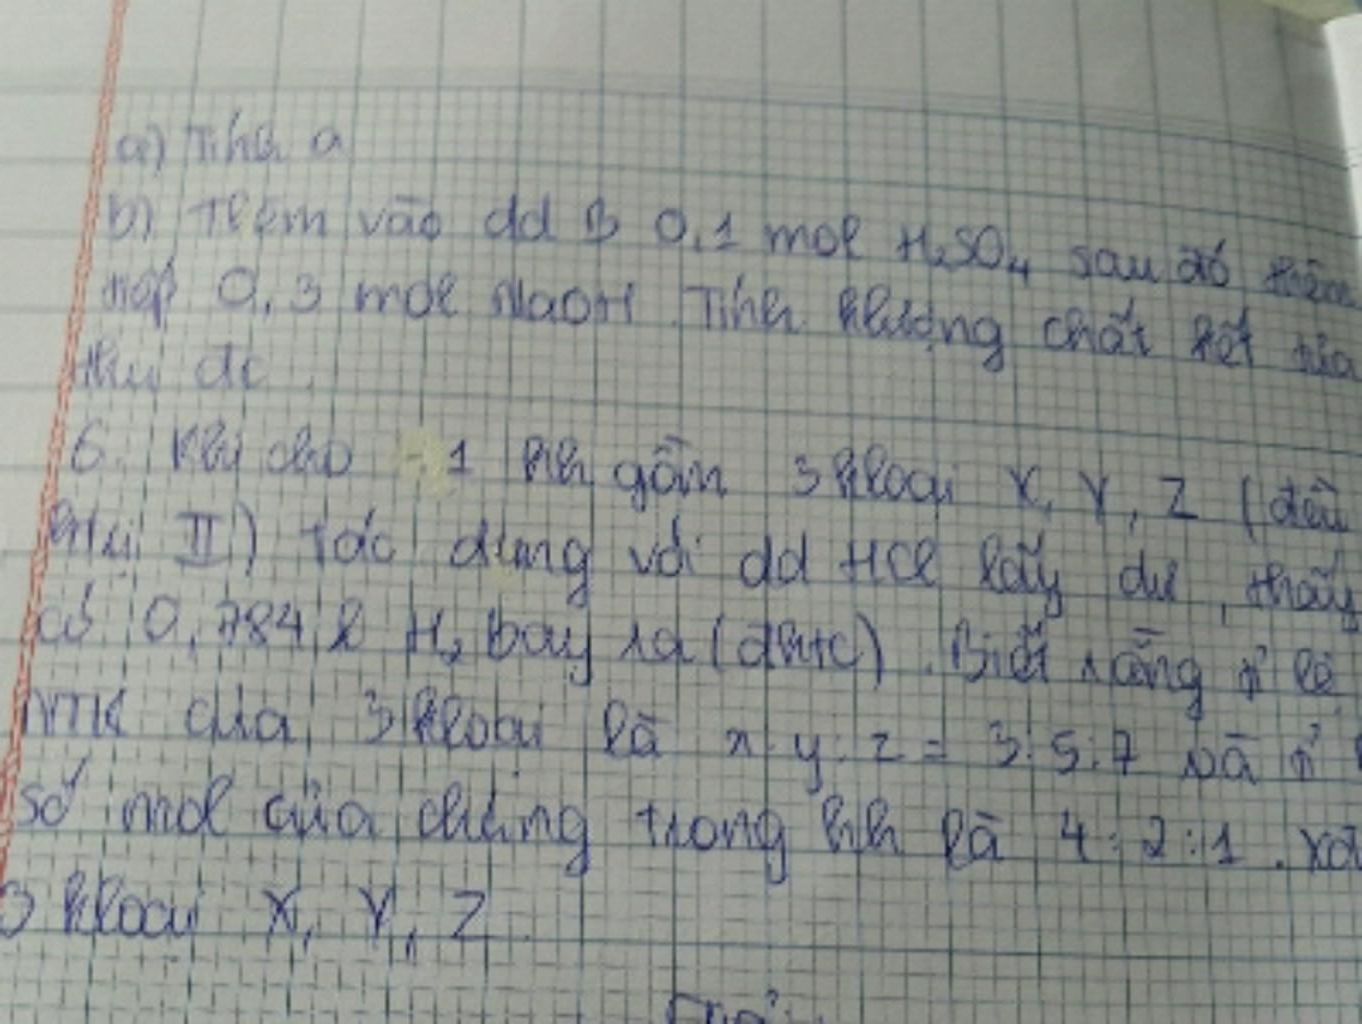 a) Tính a
b) Thêm vào dd B 0,1 mol H₂SO₄ sau đó thêm
tiếp 0,3 mol NaOH. Tính klượng chất kết tủa
thu đc.
6. Khi cho 1 hh gồm 3 kloại X, Y, Z (đều
htrị II) tác dụng với dd HCl lấy dư, thấy
có 0,784 l H₂ bay ra (đktc). Biết rằng tỉ lệ
NTK của 3 kloại là x:y:z = 3:5:7 và tỉ
số mol của chúng trong hh là 4:2:1.
3 kloại X, Y, Z.